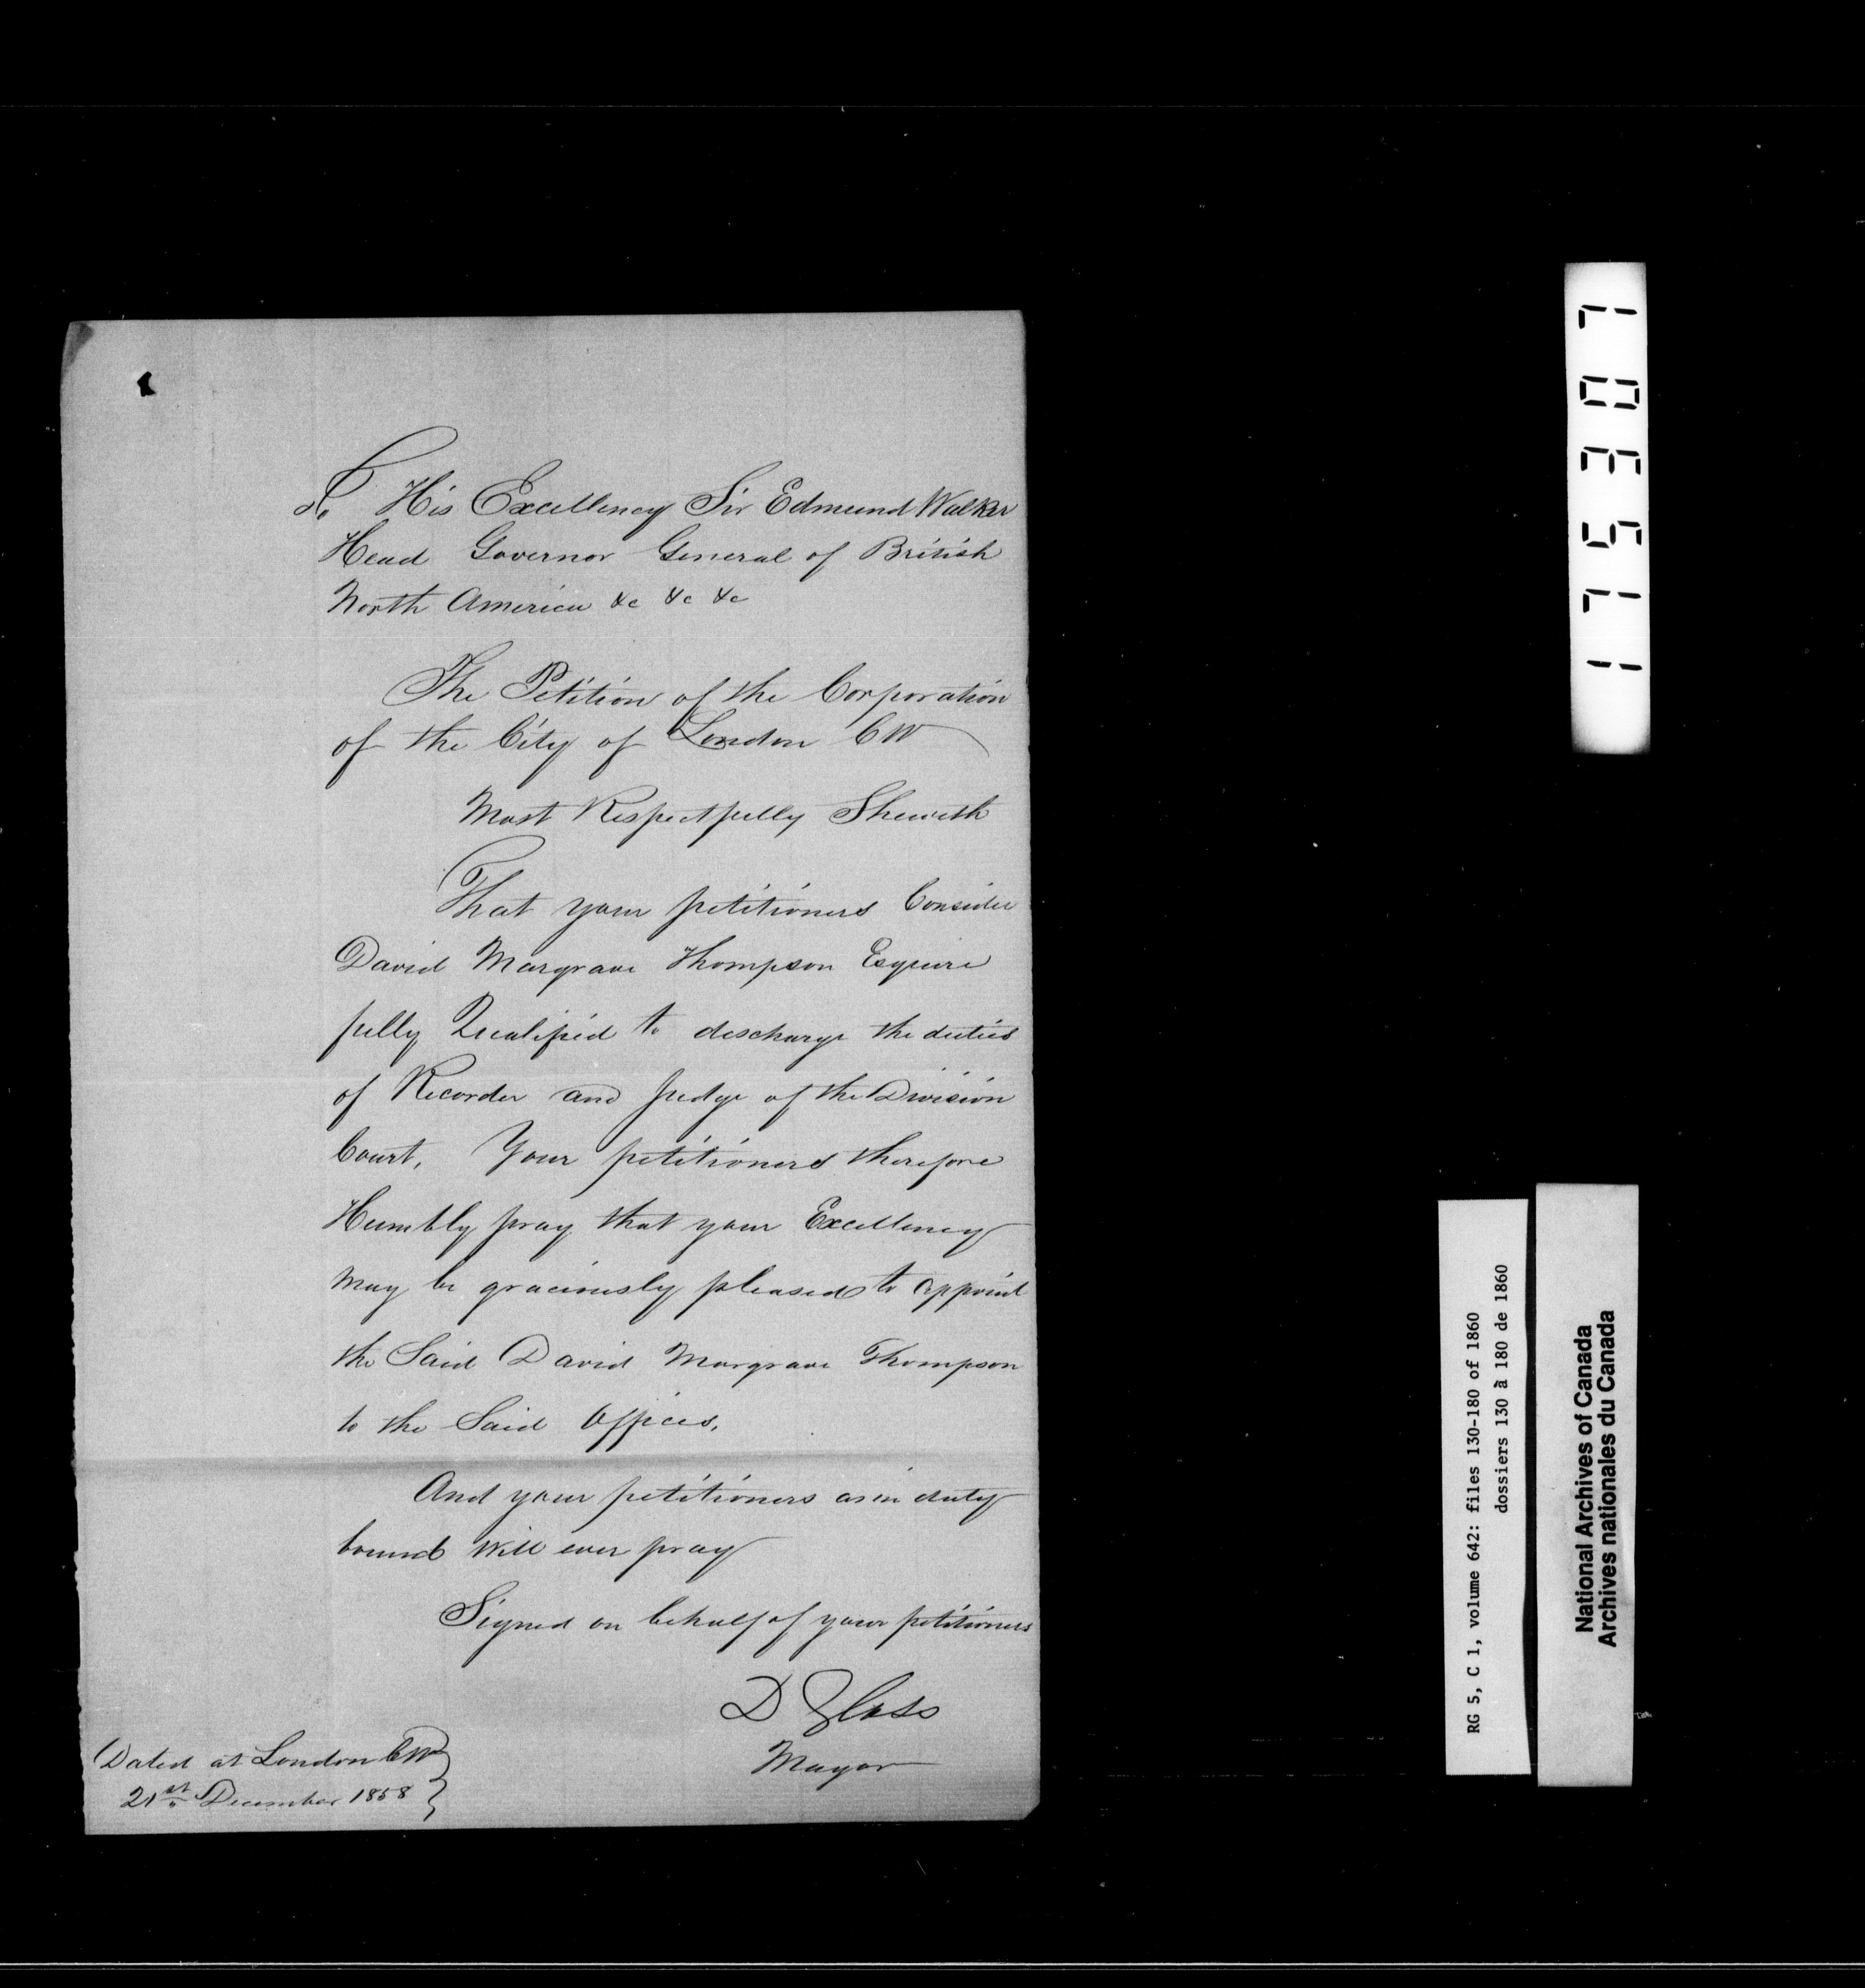 To His Excellency Sir Edmund Walker
Head Governor General of British
North America &c &c &c
The Petition of the Corporation
of the City of London CW
Most Respectfully Sheweth
That your petitioners Consider
David Margrave Thompson Esquire
fully Qualified to discharge the duties
of Recorder and Judge of the Division
Court, Your petitioners therefore
Humbly pray that your Excellency
may be graciously pleased to appoint
the Said David Margrave Thompson
to the Said Offices.
And your petitioners as in duty
bound will ever pray
Signed on behalf of your petitioners
D Glass
Mayor
Dated at London CW
21st December 1858
175307
RG 5, C 1, volume 642: files 130-180 of 1860
dossiers 130 à 180 de 1860
National Archives of Canada
Archives nationales du Canada